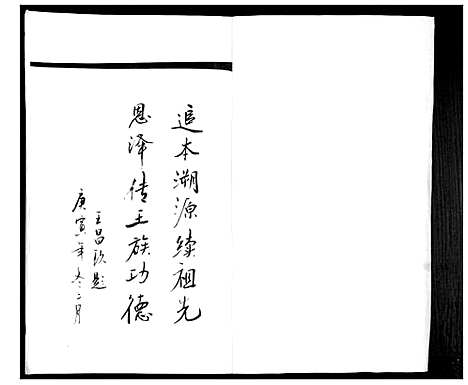 追本溯源续祖光
恩泽传王族功德
王昌欣题
庚寅年冬二月